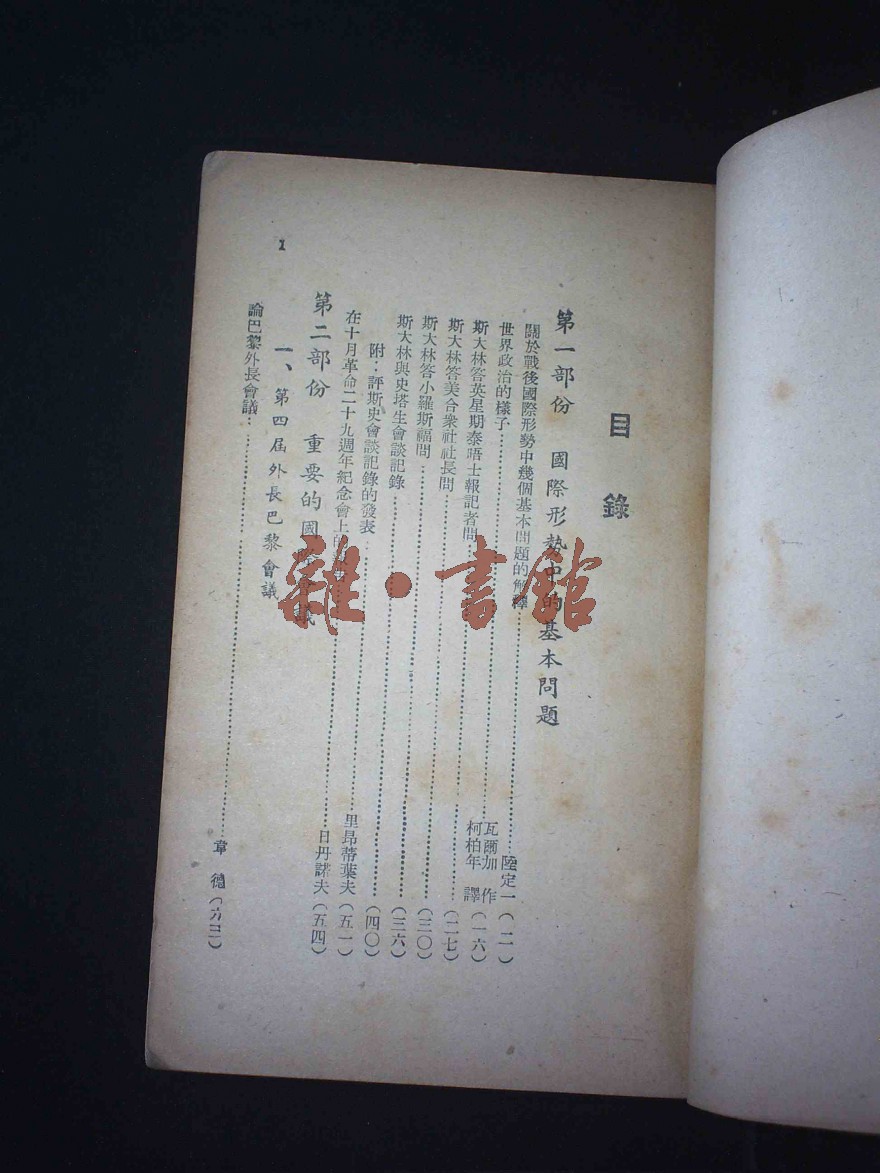 目錄
第一部份 國際形勢中的基本問題
關於戰後國際形勢中幾個基本問題的解釋……陸定一(二)
世界政治的樣子……瓦爾加 作 柯柏年 譯(一六)
斯大林答英星期泰晤士報記者問……(二七)
斯大林答美合衆社社長問……(三〇)
斯大林答小羅斯福問……(三六)
斯大林與史塔生會談記錄……(四〇)
附:評斯史會談記錄的發表……里昂蒂葉夫(五一)
在十月革命二十九週年紀念會上……日丹諾夫(五四)
第二部份 重要的國議
一、第四屆外長巴黎會議
論巴黎外長會議……章德(六三)
1
雜·書館